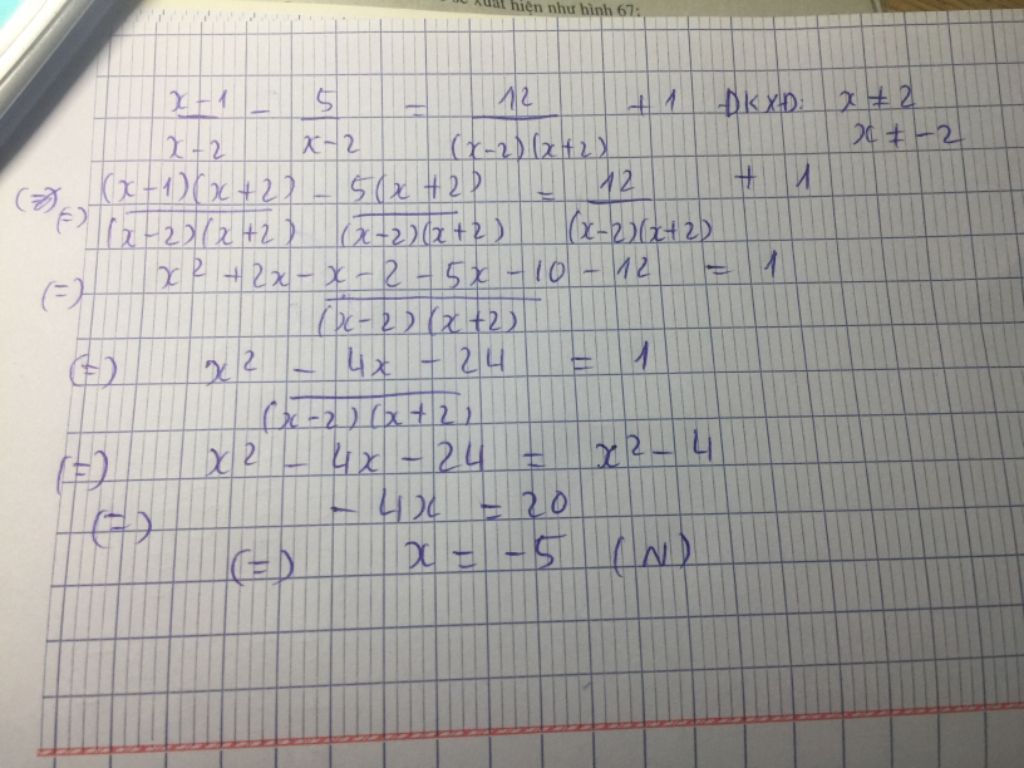 xuất hiện như hình 67:
x-1 / x-2 - 5 / x-2 = 12 / (x-2)(x+2) + 1 DKXD: x ≠ 2
x ≠ -2
(=) (x-1)(x+2) / (x-2)(x+2) - 5(x+2) / (x-2)(x+2) = 12 / (x-2)(x+2) + 1
(=) x² + 2x - x - 2 - 5x - 10 - 12 / (x-2)(x+2) = 1
(=) x² - 4x - 24 / (x-2)(x+2) = 1
(=) x² - 4x - 24 = x² - 4
(=) - 4x = 20
(=) x = -5 (N)